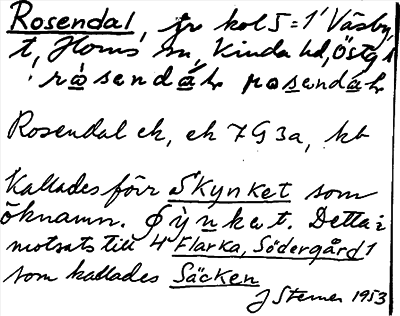 Rosendal, jr kol 5 = 1' Väsby
t, Horns sn, Kinda hd, Östg l
rosendáh rosendah
Rosendal ek, ek 7G 3a, kb
Kallades förr Skynket som
öknamn. Detta i
motsats till 4 Flarka, Södergård 1
som kallades Säcken
J Sterner 1953